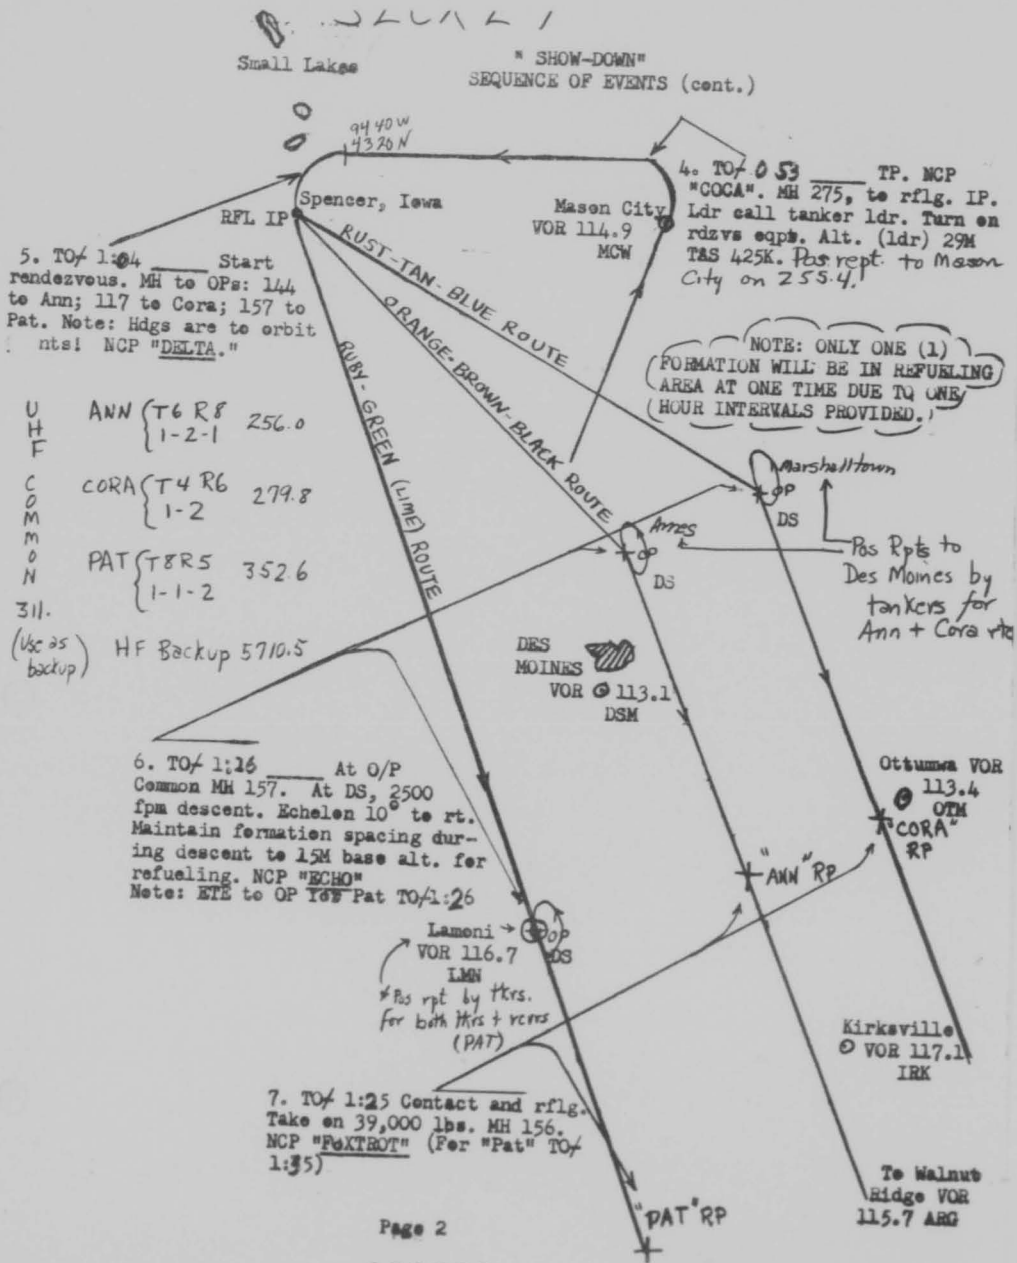 SECRET
Small Lakes
" SHOW-DOWN"
SEQUENCE OF EVENTS (cont.)
9440W
4320N
4. TO+ 0 53 ____ TP. NCP
"COCA". MH 275, to rflg. IP.
Ldr call tanker ldr. Turn on
rdzvs eqpt. Alt. (ldr) 29M
TAS 425K. Pos rept. to Mason
City on 255.4.
Spencer, Iowa
RFL IP
Mason City
VOR 114.9
MCW
5. TO+ 1:04 ____ Start
rendezvous. MH to OPs: 144
to Ann; 117 to Cora; 157 to
Pat. Note: Hdgs are to orbit
nts! NCP "DELTA."
RUST-TAN-BLUE ROUTE
ORANGE-BROWN-BLACK ROUTE
RUBY-GREEN (LIME) ROUTE
NOTE: ONLY ONE (1)
FORMATION WILL BE IN REFUELING
AREA AT ONE TIME DUE TO ONE
HOUR INTERVALS PROVIDED.
UHF
COMMON
311.
(Use as
backup)
ANN { T6 R8
1-2-1
256.0
CORA { T4 R6
1-2
279.8
PAT { T8 R5
1-1-2
352.6
HF Backup 5710.5
Marshalltown
OP
DS
Ames
OP
DS
Pos Rpts to
Des Moines by
tankers for
Ann + Cora rte
DES
MOINES
VOR 113.1
DSM
6. TO+ 1:26 ____ At O/P
Common MH 157. At DS, 2500
fpm descent. Echelon 10° to rt.
Maintain formation spacing dur-
ing descent to 15M base alt. for
refueling. NCP "ECHO"
Note: ETE to OP for Pat TO+1:26
Ottumwa VOR
113.4
OTM
"CORA"
RP
"ANN" RP
Lamoni
VOR 116.7
LMN
OP
DS
* Pos rpt by tkrs.
for both tkrs + rcvrs
(PAT)
Kirksville
VOR 117.1
IRK
7. TO+ 1:25 Contact and rflg.
Take on 39,000 lbs. MH 156.
NCP "FOXTROT" (For "Pat" TO+
1:35)
To Walnut
Ridge VOR
115.7 ARG
"PAT" RP
Page 2